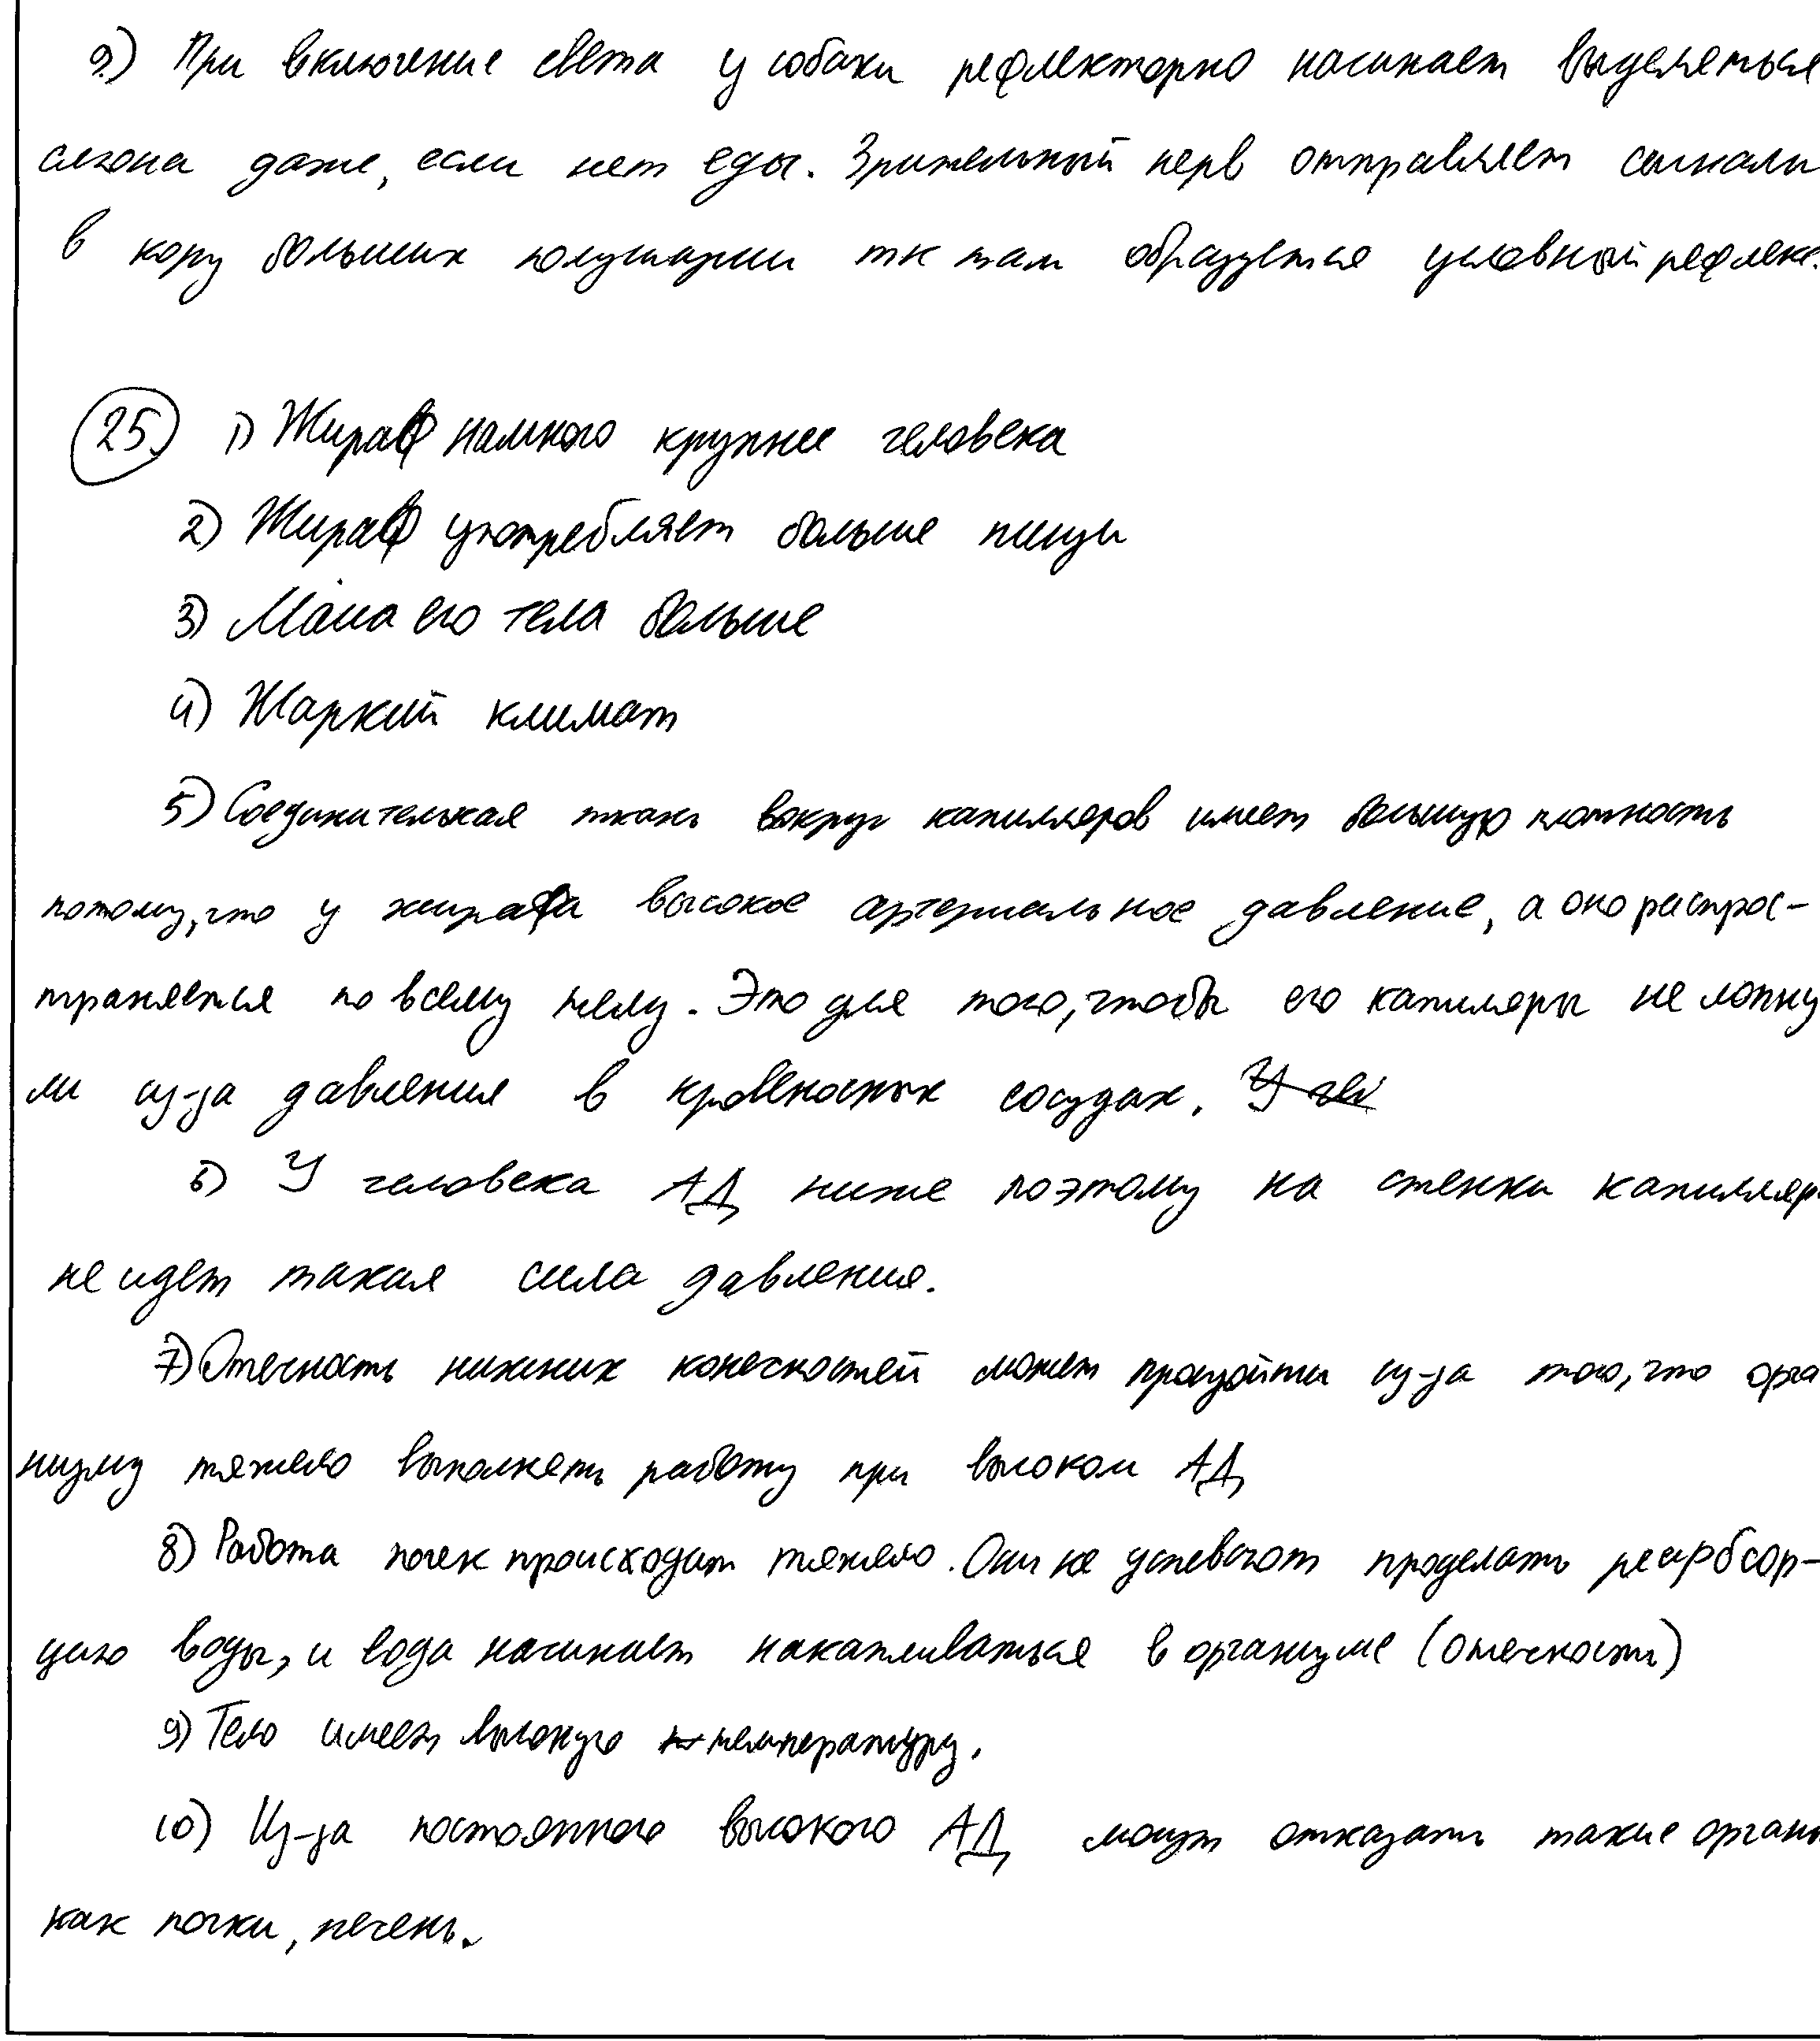 9.) При включение света у собаки рефлекторно начинает выделяться
слюна даже, если нет еды. Зрительный нерв отправляет сигналы
в кору больших полушарии тк там образуется условный рефлекс.
25. 1) Жираф намного крупнее человека
2) Жираф употребляет больше пищи
3) Масса его тела больше
4) Жаркий климат
5) Соединительная ткань вокруг капилляров имеет большую плотность
потому, что у жирафа высокое артериальное давление, а оно распрос-
траняется по всему телу. Это для того, чтобы его капиляры не лопну
ли из-за давления в кровеносных сосудах.
6) У человека АД ниже поэтому на стенки капилляр
не идет такая сила давления.
7) Отечность нижних конечностей может произойти из-за того, что орга
низму тяжело выполнять работу при высоком АД
8) Работа почек происходит тяжело. Они не успевают проделать реабсор-
цию воды, и вода начинает накапливаться в организме (отечность)
9) Тело имеет высокую температуру.
10) Из-за постоянного высокого АД могут отказать такие органы
как почки, печень.